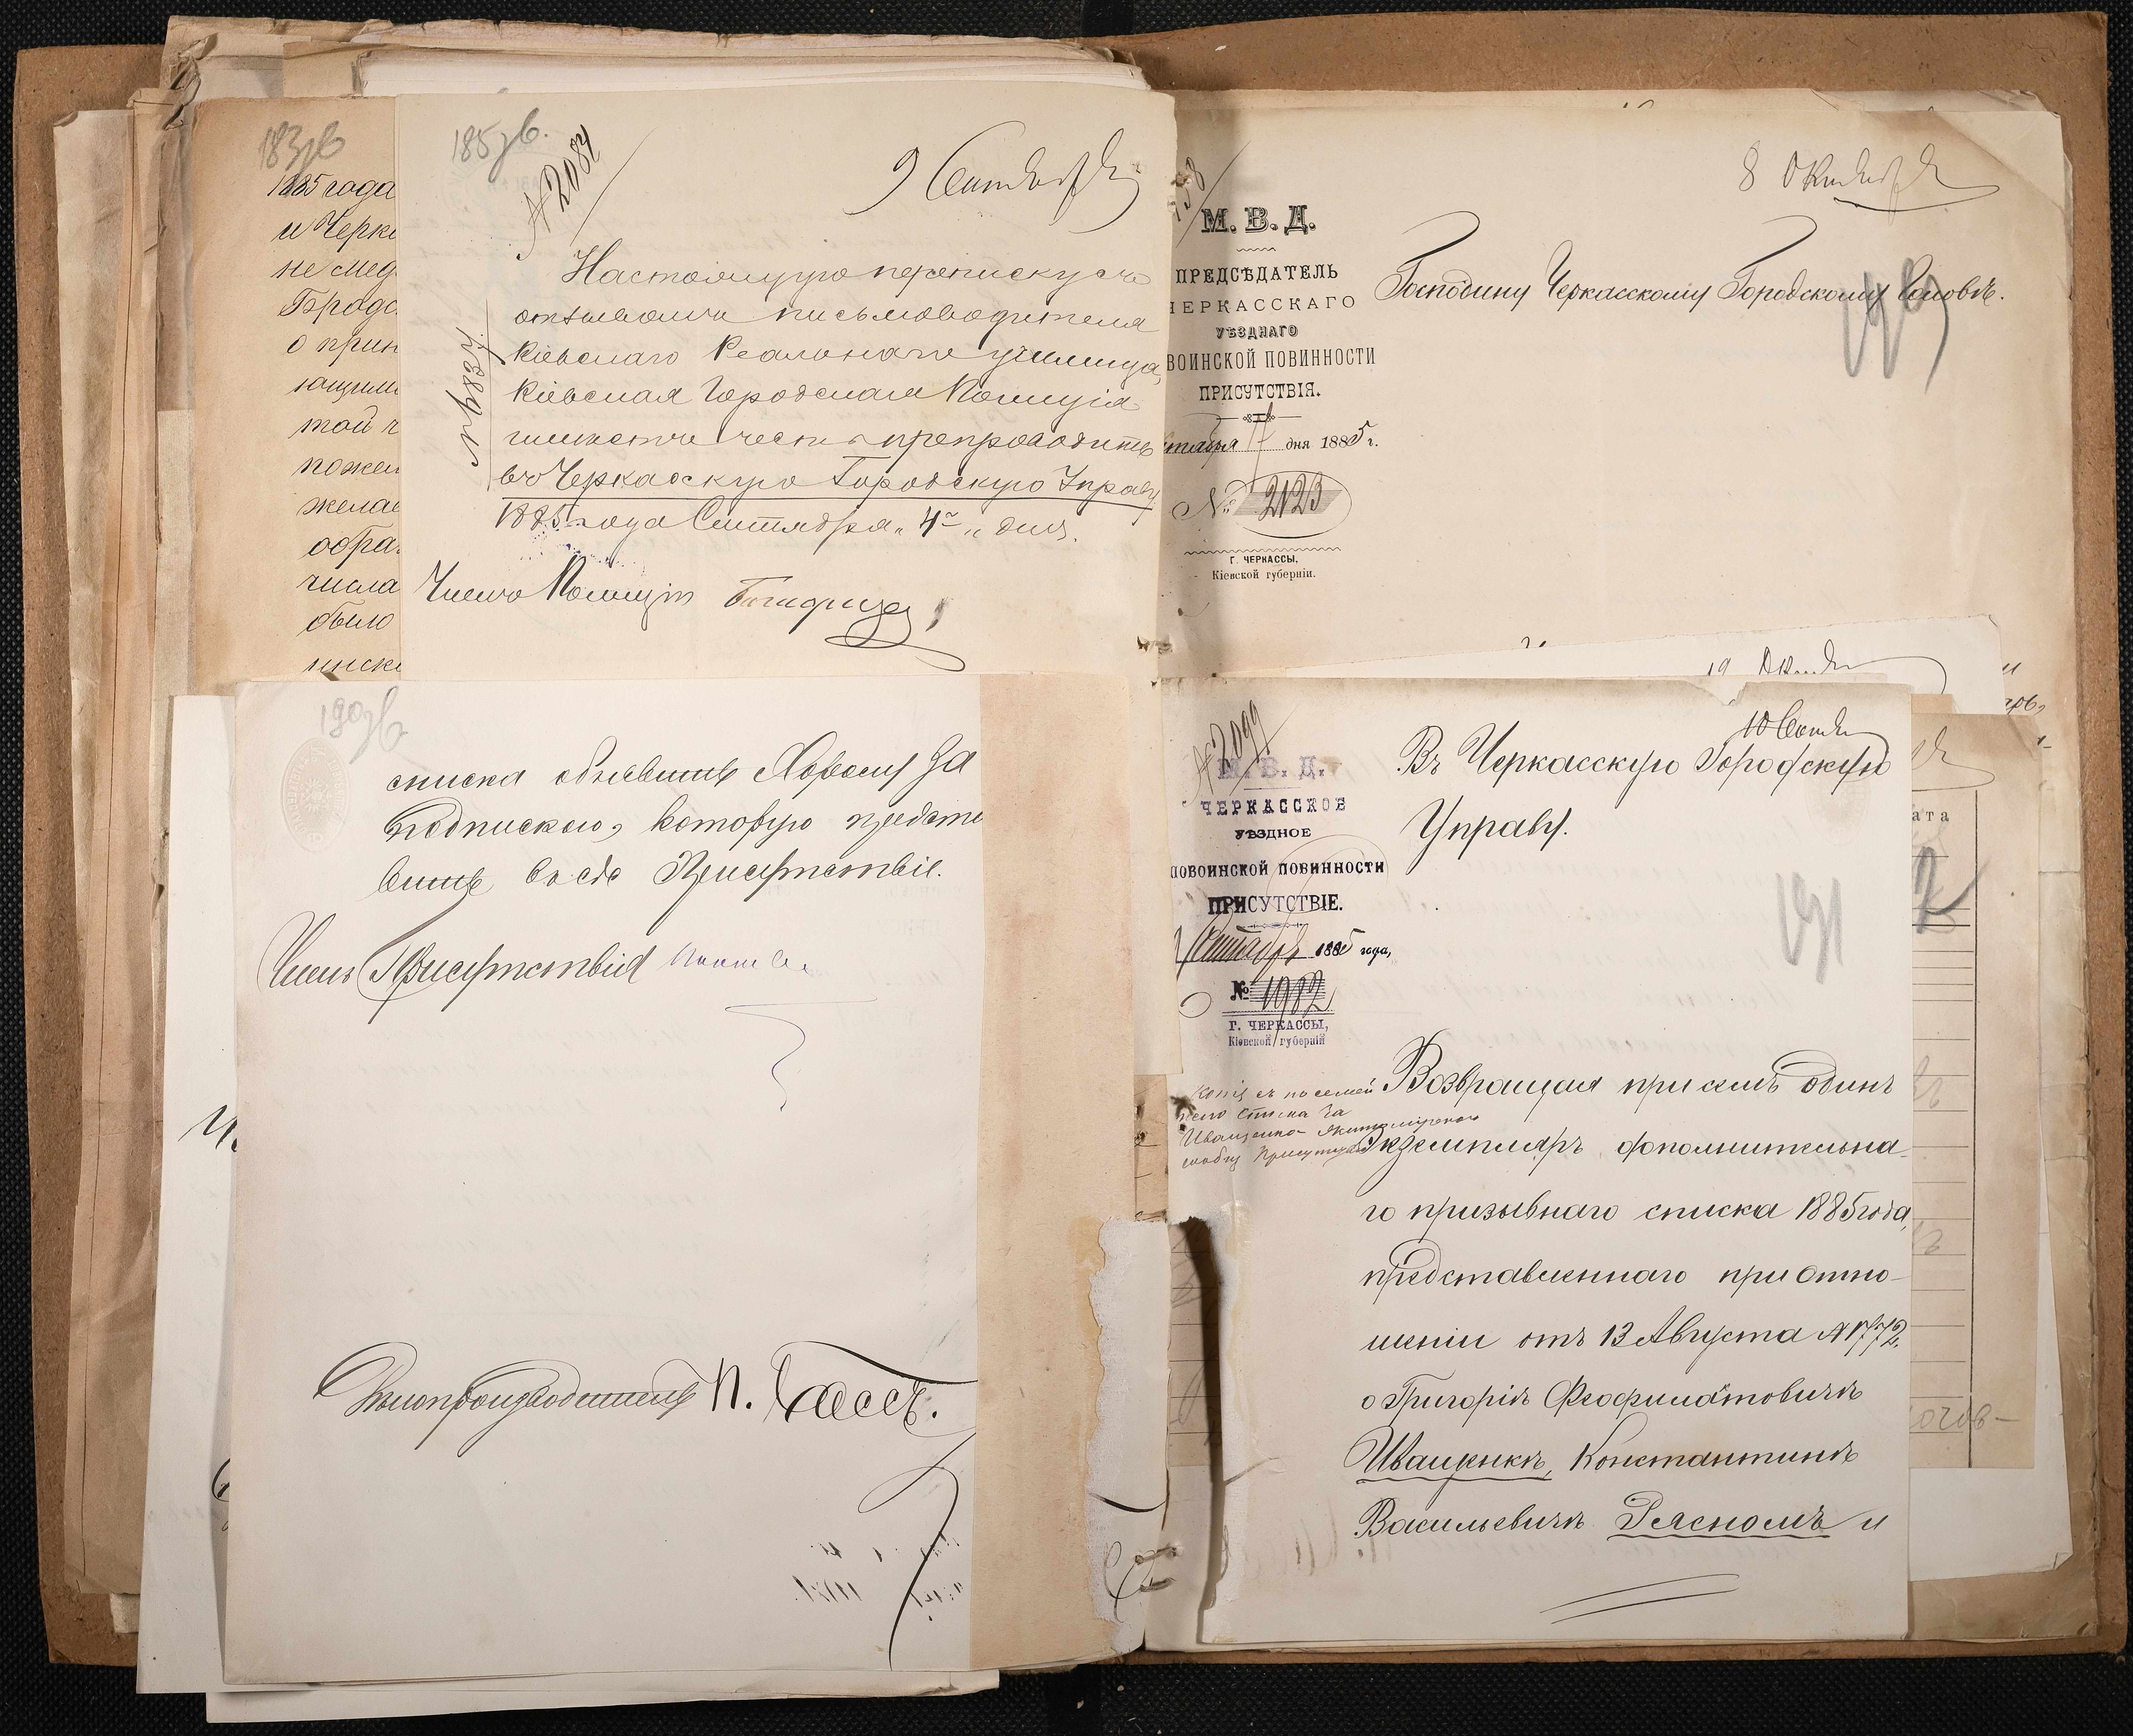 183 зв
1885 года
и Черк
не мед
Городс
о прин
ющими
той ч
пожел
желае
обра
числа
было
писк
185 зв.
№ 2084
9 Сентября
№ 6837
Настоящую переписку съ
отзывомъ письмоводителя
Кіевскаго Реальнаго училища,
Кіевская Городская Полиція
имѣетъ честь препроводить
въ Черкасскую Городскую Управу.
1885 года Сентября „4" дня.
Членъ Полиціи
8 Октября
М. В. Д.
ПРЕДСѢДАТЕЛЬ
ЧЕРКАССКАГО
УѢЗДНАГО
ВОИНСКОЙ ПОВИННОСТИ
ПРИСУТСТВІЯ.
дня 1885 г.
№ 2123
Г. ЧЕРКАССЫ,
Кіевской губерніи.
Господину Черкасскому Городскому Головѣ.
190 зв
списка объявить
подпискою, которую предста
вить въ сіе Присутствіе.
Членъ Присутствія
Дѣлопроизводитель П.
19 Октя
10 Сентя
№ 2099
М. В. Д.
ЧЕРКАССКОЕ
УѢЗДНОЕ
ПОВОИНСКОЙ ПОВИННОСТИ
ПРИСУТСТВІЕ.
Сентября 1885 года,
№ 1982
Г. ЧЕРКАССЫ,
Кіевской губерніи
Въ Черкасскую Городскую
Управу.
191
Копія съ посемей
наго списка за
Возвращая при семъ одинъ
экземпляръ дополнительна-
го призывнаго списка 1885 года,
представленнаго при отно-
шеніи отъ 13 Августа № 1772,
о Григоріѣ Феофилатовичѣ
Иващенкѣ, Константинѣ
Васильевичѣ Рясномъ и
ата